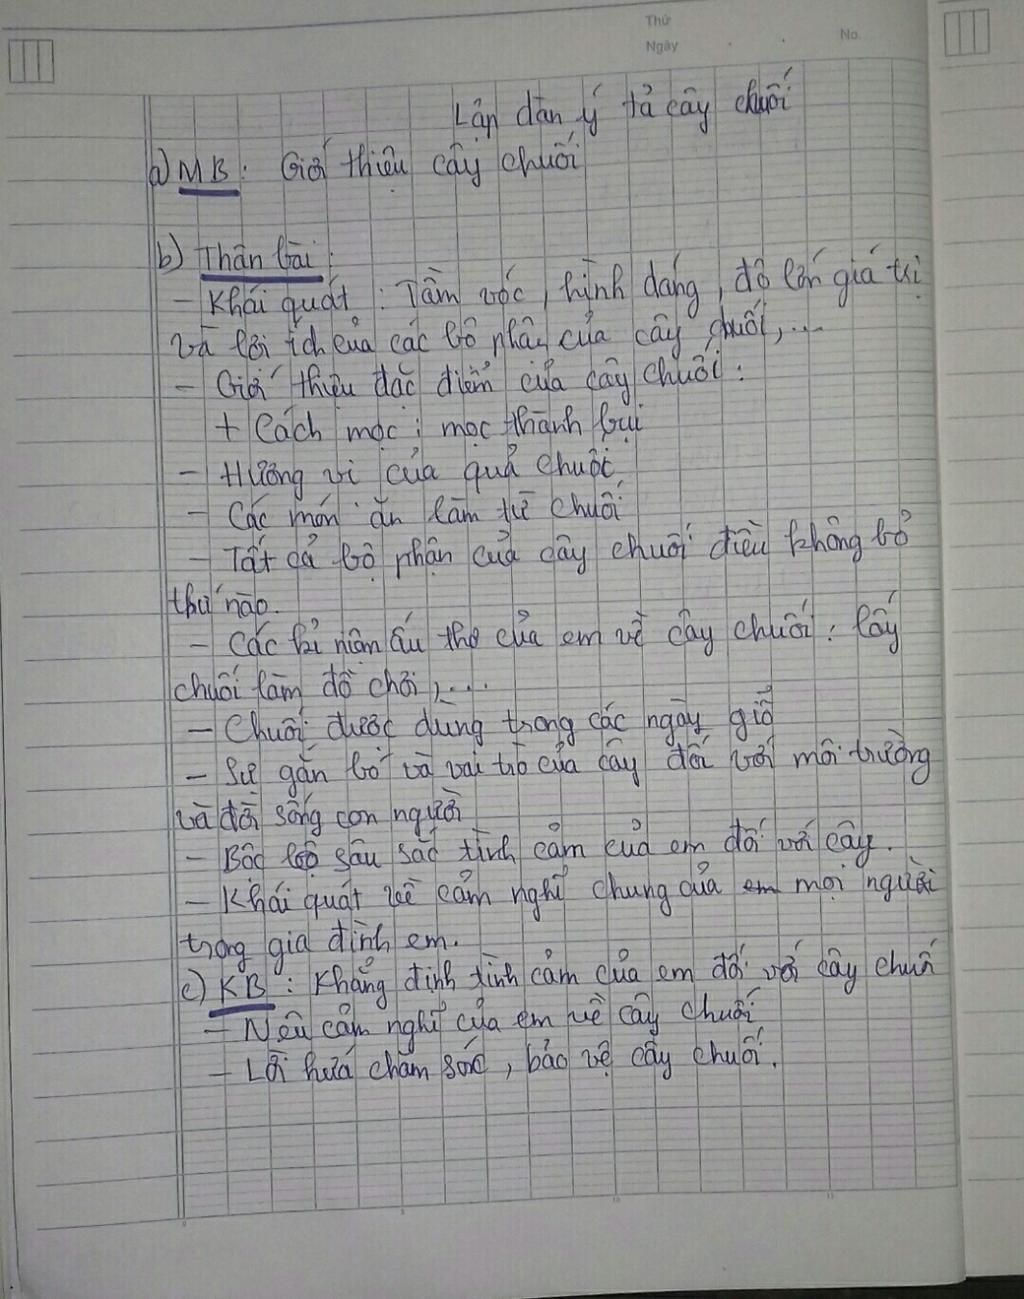 Thứ
Ngày
No.
Lập dàn ý tả cây chuối
a) MB: Giới thiệu cây chuối
b) Thân bài:
- Khái quát: Tầm vóc, hình dáng, độ lớn giá trị
và lợi ích của các bộ phận của cây chuối,...
- Giới thiệu đặc điểm của cây chuối:
+ Cách mọc: mọc thành bụi
- Hương vị của quả chuối
- Các món ăn làm từ chuối
- Tất cả bộ phận của cây chuối điều không bỏ
thứ nào.
- Các kỉ niệm ấu thơ của em về cây chuối: lấy
chuối làm đồ chơi,...
- Chuối được dùng trong các ngày giỗ
- Sự gắn bó và vai trò của cây đối với môi trường
và đời sống con người
- Bộc lộ sâu sắc tình cảm của em đối với cây.
- Khái quát về cảm nghĩ chung của em mọi người
trong gia đình em.
c) KB: Khẳng định tình cảm của em đối với cây chuối
- Nêu cảm nghĩ của em về cây chuối
- Lời hứa chăm sóc, bảo vệ cây chuối.